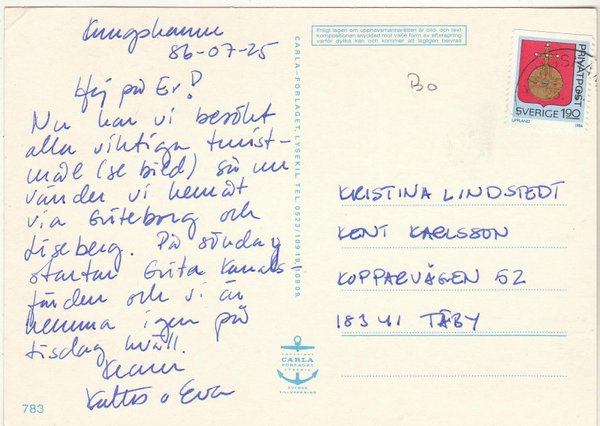 Kungshamn
86-07-25
Hej på Er!
Nu har vi besökt
alla viktiga turist-
mål (se bild) så nu
vänder vi hemåt
via Göteborg och
Liseberg. På söndag
startar Göta Kanals-
färden och vi är
hemma igen på
tisdag kväll.
Kram
Eva
783
CARLA-FÖRLAGET, LYSEKIL TEL. 0523/109 19, 109 08
COPYRIGHT
CARLA
FÖRLAGET
LYSEKIL
SVENSK
TILLVERKNING
Enligt lagen om upphovsmannarätten är bild- och text-
kompositionen skyddad mot varje form av efterapning
varför dylika kan och kommer att lagligen beivras
Bo
PRIVATPOST
SVERIGE 1.90
UPPLAND
1986
KRISTINA LINDSTEDT
KENT KARLSSON
KOPPARVÄGEN 52
183 41 TÄBY